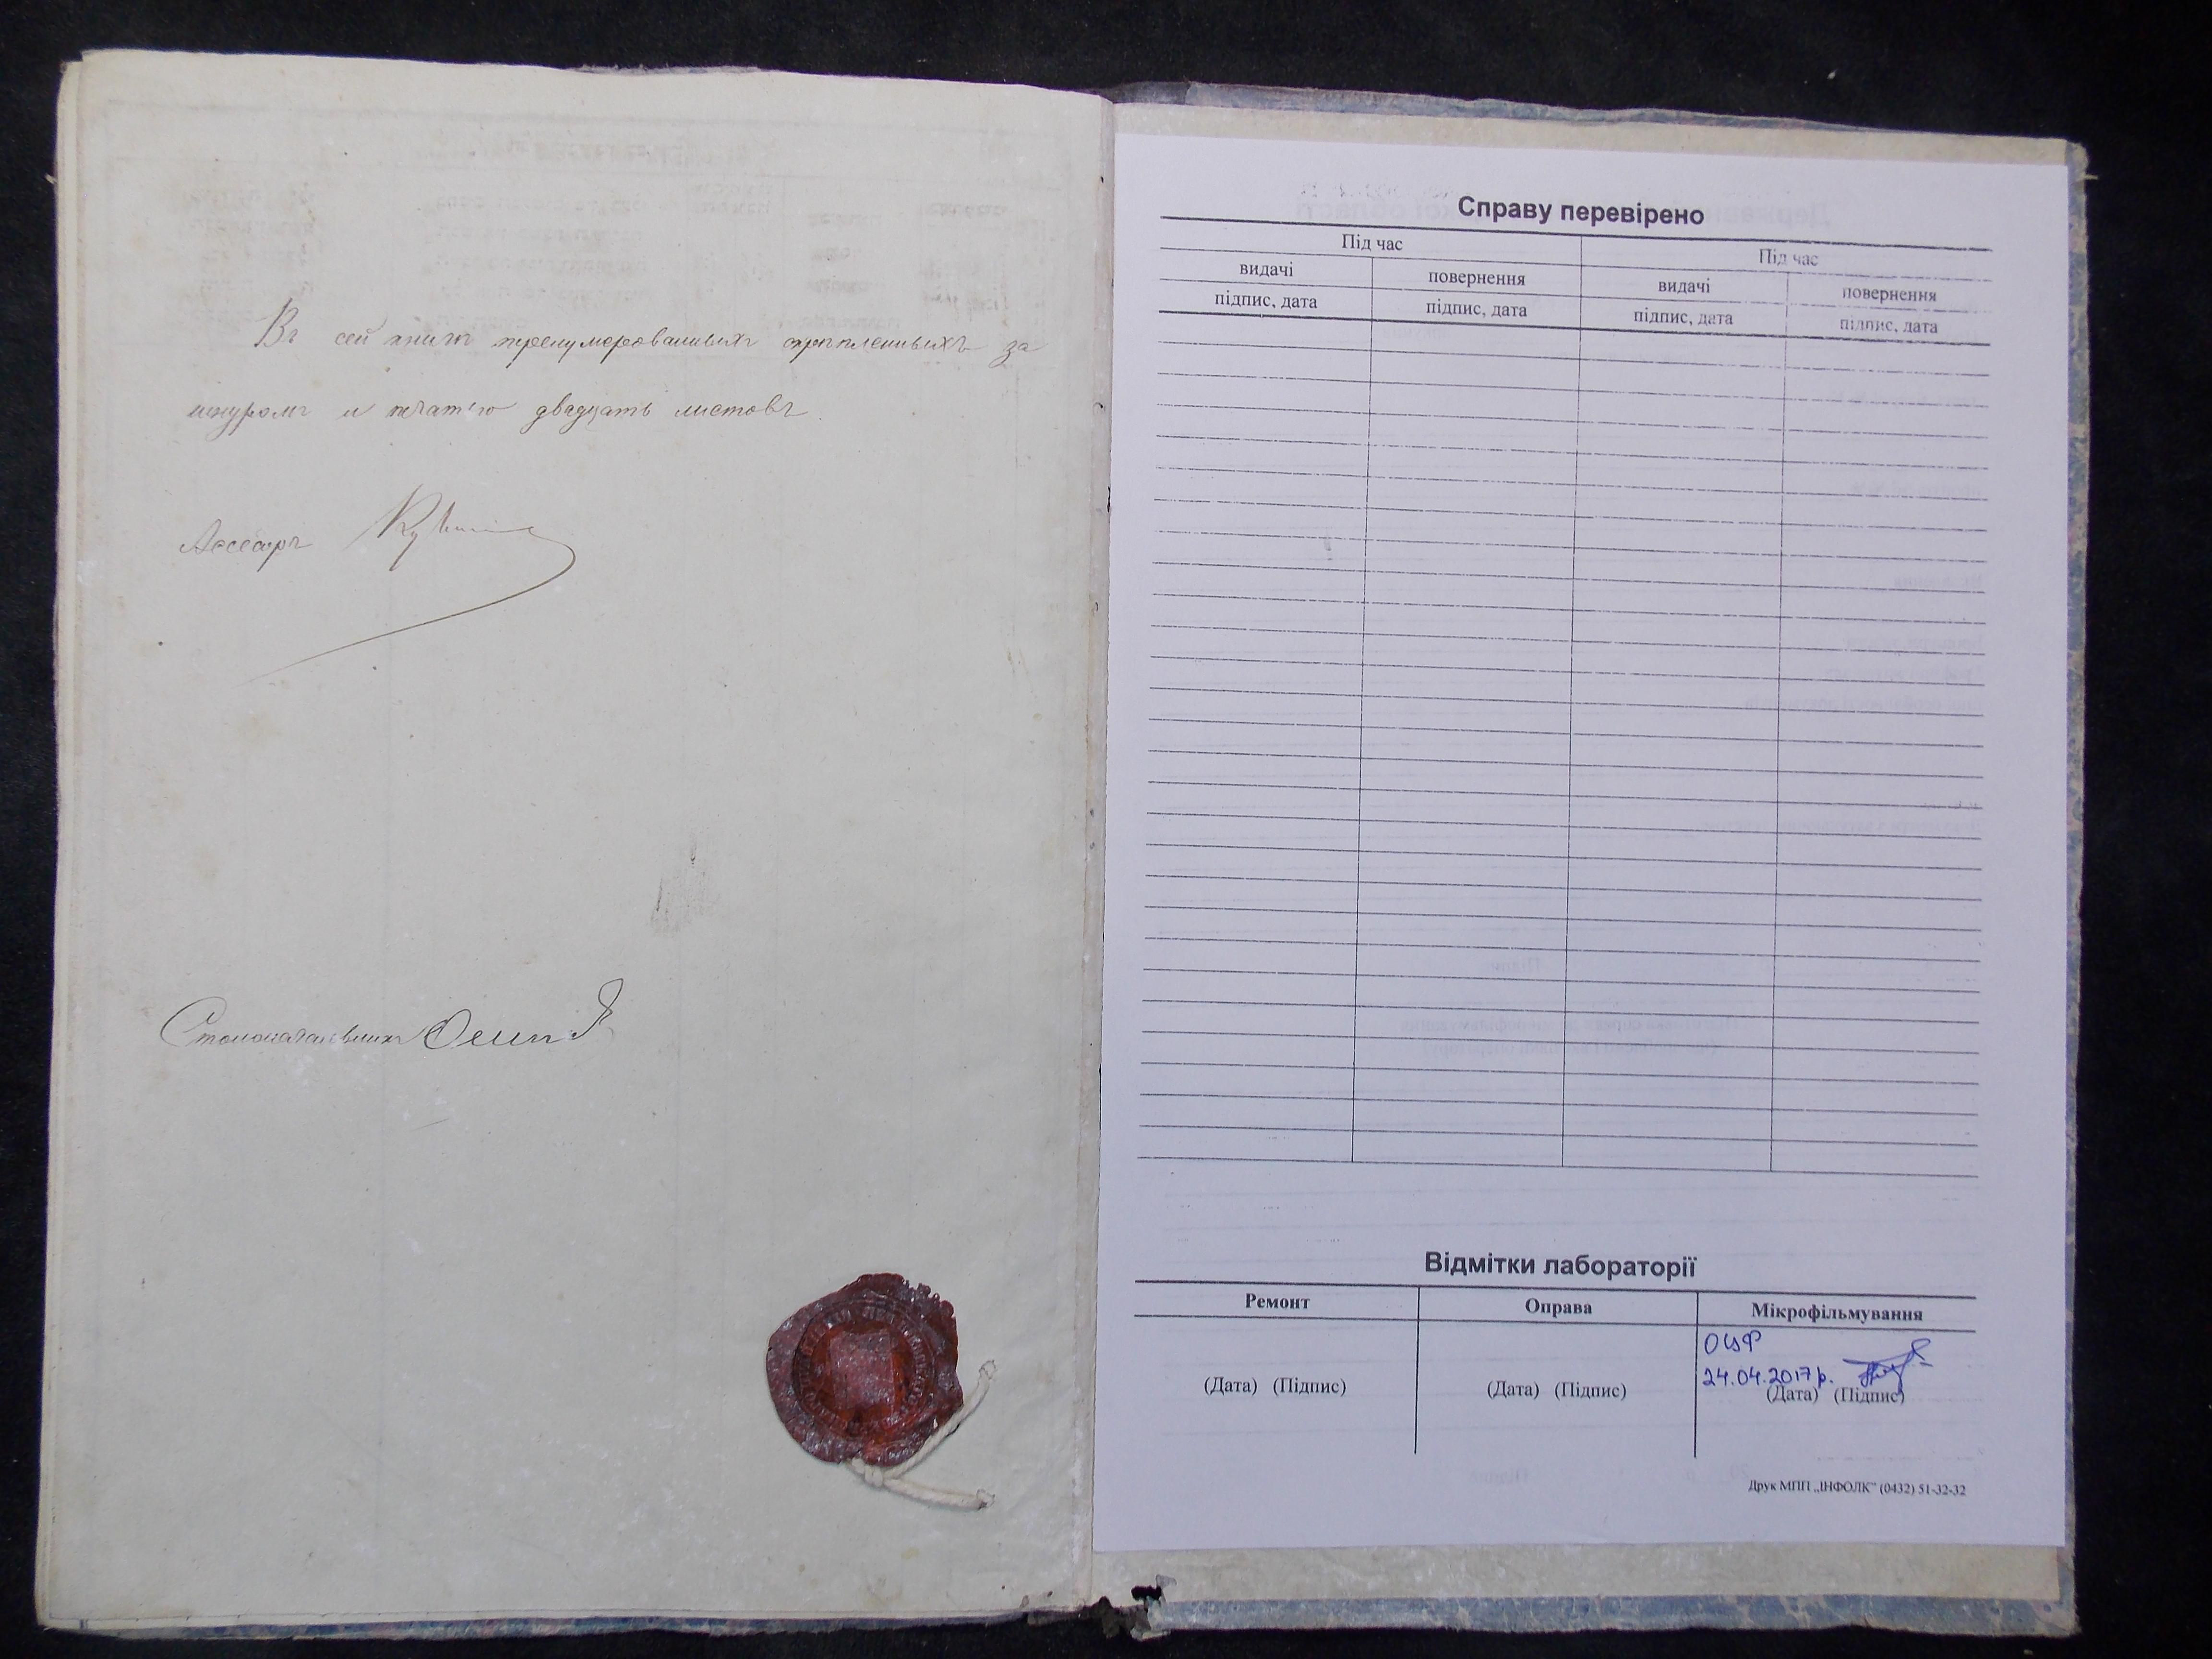 Въ сей книгѣ пренумерованныхъ скрѣпленныхъ за
шнуромъ и печатью двадцать листовъ.
Ассесоръ
Столоначальникъ
Справу перевірено
Під час
Під час
видачі
повернення
видачі
повернення
підпис, дата
підпис, дата
підпис, дата
підпис, дата
Відмітки лабораторії
Ремонт
Оправа
Мікрофільмування
ОЦФ
24.04.2017р.
(Дата) (Підпис)
(Дата) (Підпис)
(Дата) (Підпис)
Друк МПП „ІНФОЛК” (0432) 51-32-32